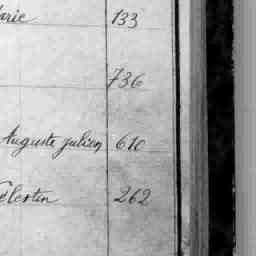 arie 133
736
Auguste julien 610
élestin 262